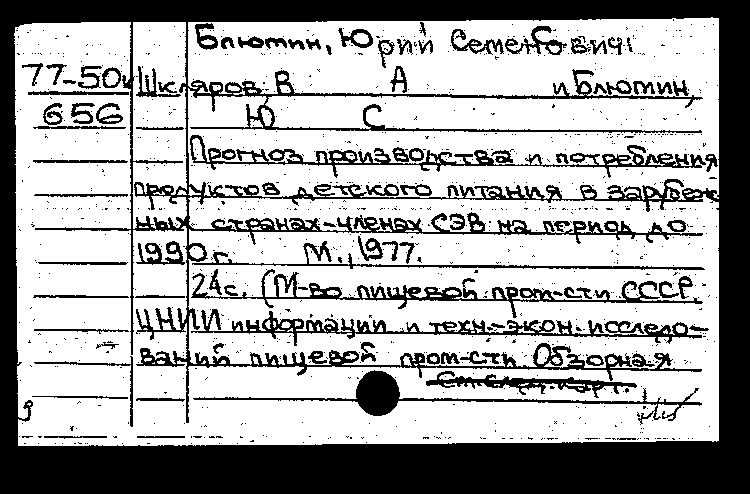 Блютин, Юрий Семенович
77-50
656
Шкляров В А и Блютин,
Ю С
Прогноз производства и потребления
продуктов детского питания в зарубеж
ных странах-членах СЭВ на период до
1990 г. М., 1977.
24 с. (М-во пищевой пром-сти СССР.
ЦНИИ информации и техн.-экон. исследо-
ваний пищевой пром-сти. Обзорная
См. след. карт.
9